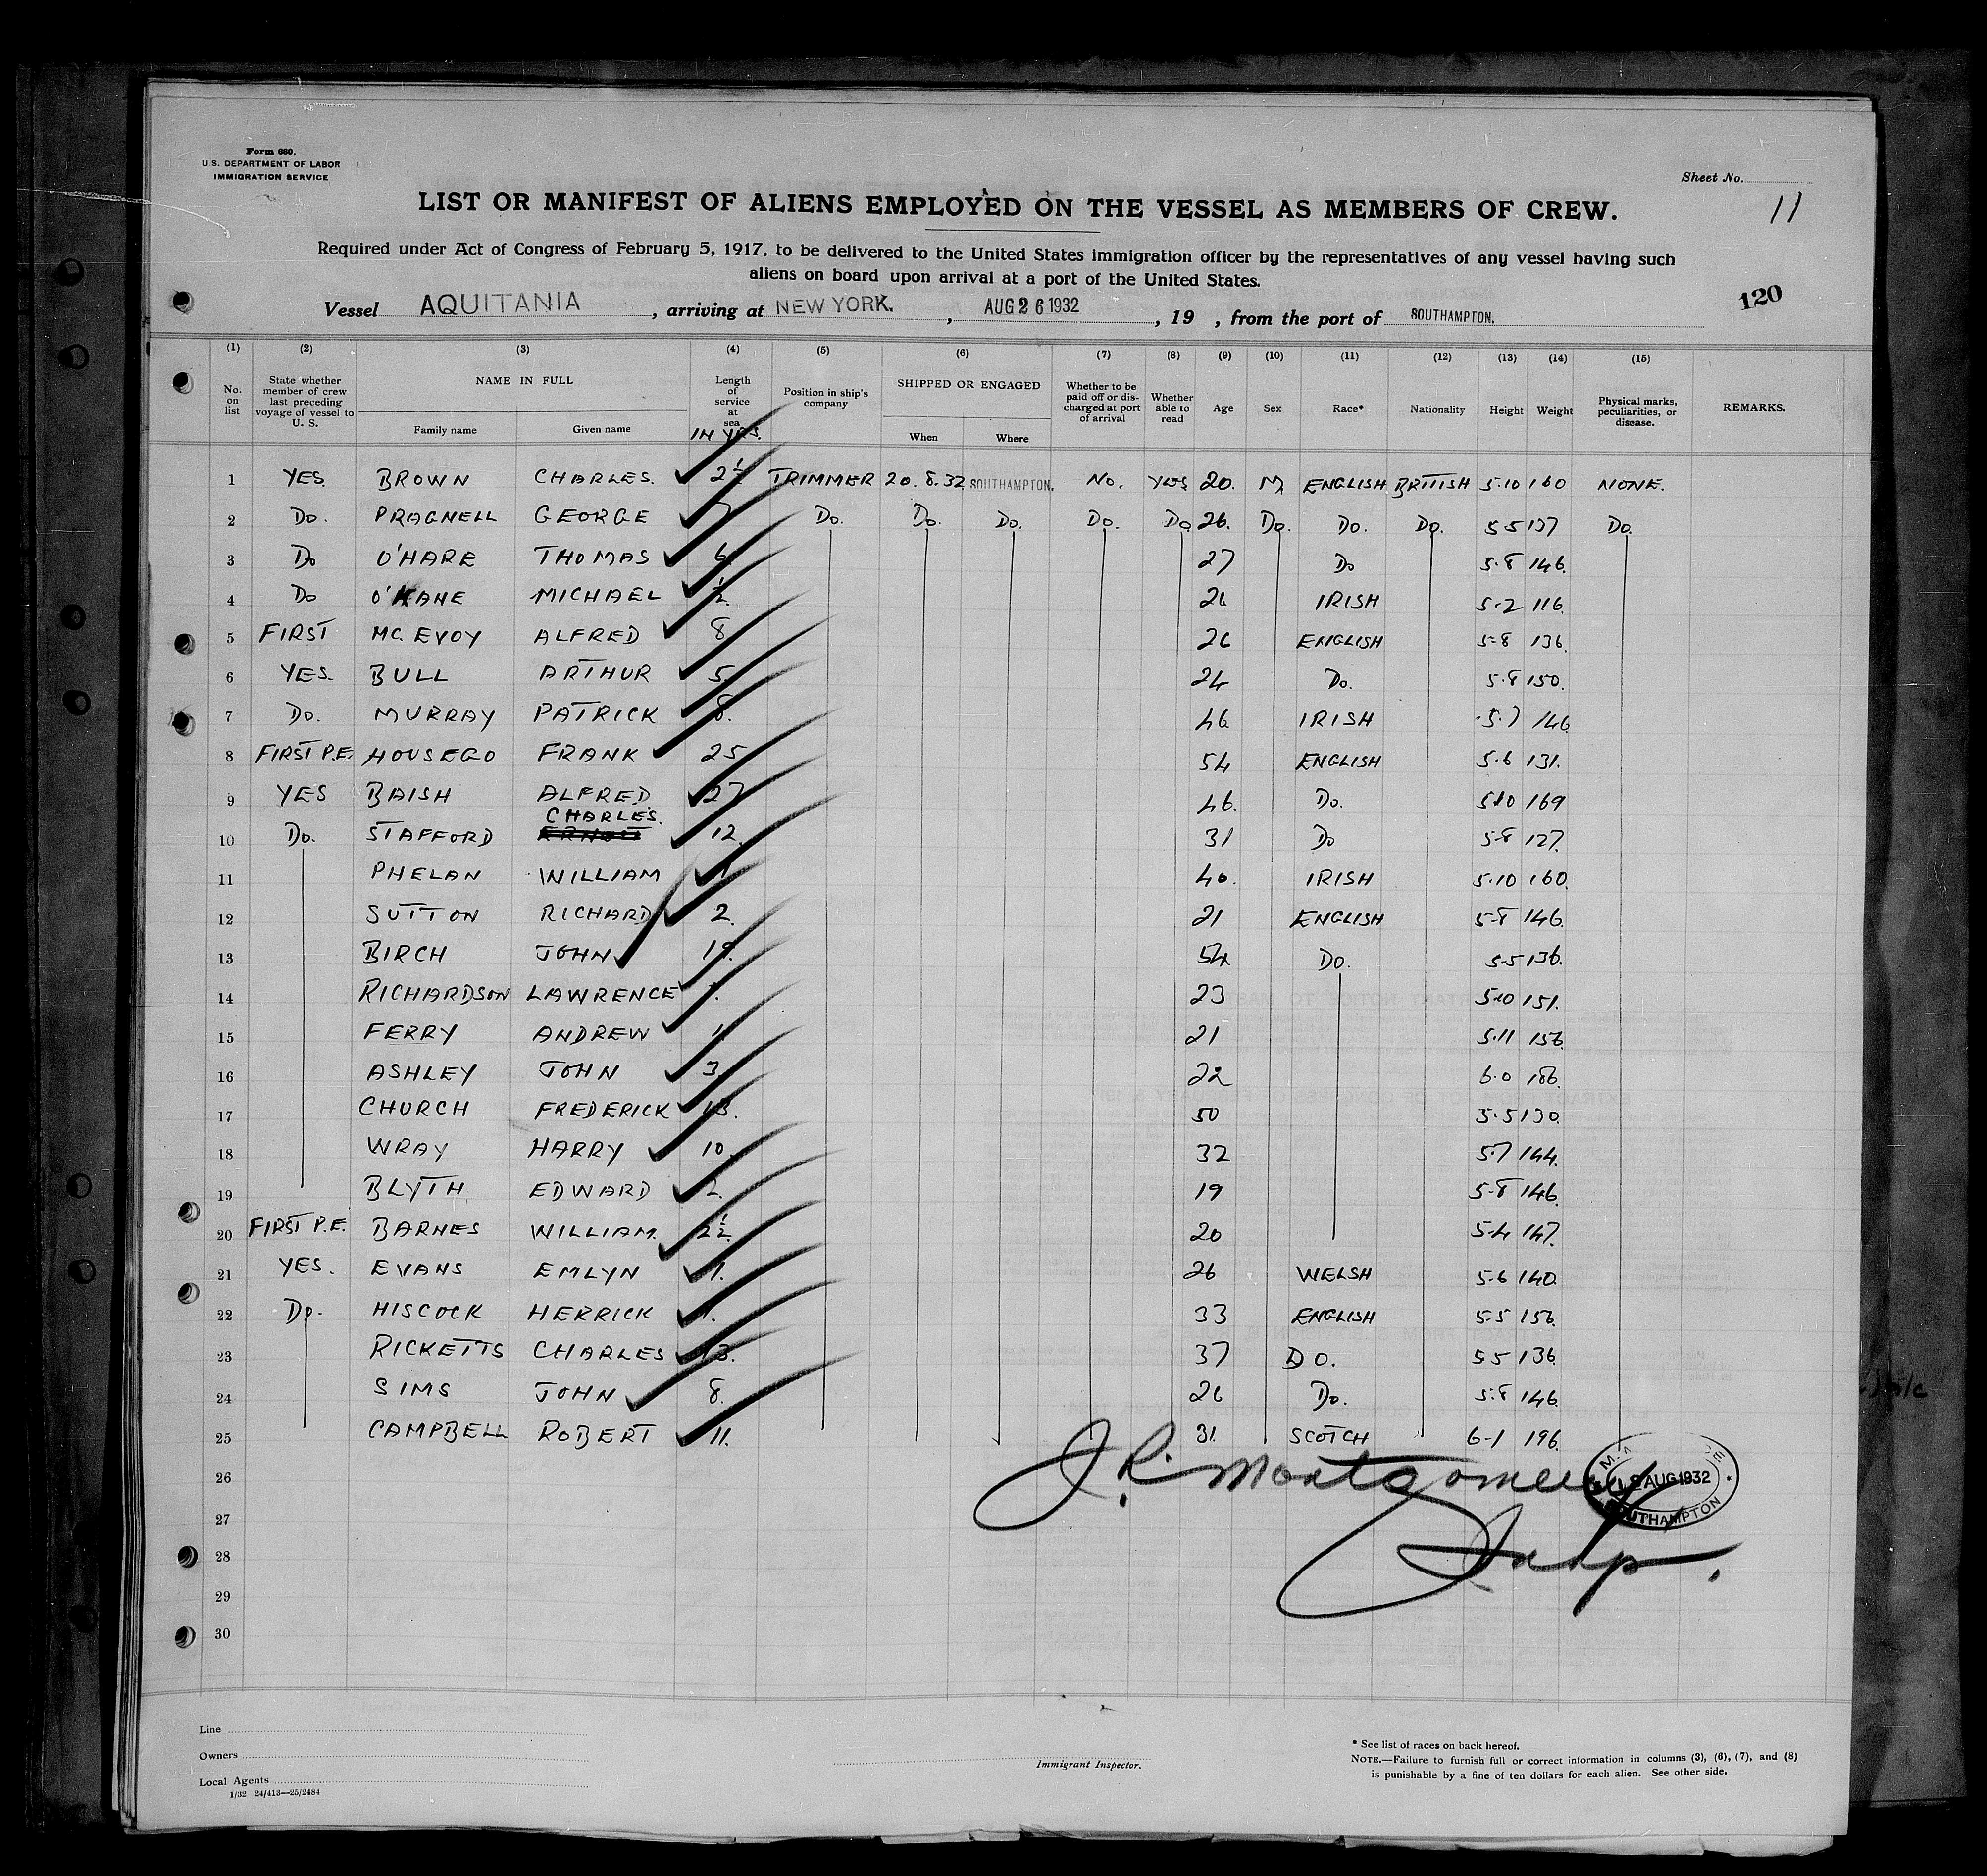 Form 680.
U.S. DEPARTMENT OF LABOR
IMMIGRATION SERVICE
Sheet No.
11
LIST OR MANIFEST OF ALIENS EMPLOYED ON THE VESSEL AS MEMBERS OF CREW.
Required under Act of Congress of February 5, 1917, to be delivered to the United States immigration officer by the representatives of any vessel having such
aliens on board upon arrival at a port of the United States.
120
Vessel AQUITANIA , arriving at NEW YORK. , AUG 26 1932 , 19 , from the port of SOUTHAMPTON.
(1) (2) (3) (4) (5) (6) (7) (8) (9) (10) (11) (12) (13) (14) (15)
No. on list State whether member of crew last preceding voyage of vessel to U. S. NAME IN FULL Family name Given name Length of service at sea IN YRS. Position in ship's company SHIPPED OR ENGAGED When Where Whether to be paid off or discharged at port of arrival Whether able to read Age Sex Race* Nationality Height Weight Physical marks, peculiarities, or disease. REMARKS.
1 YES. BROWN CHARLES. 2½ TRIMMER 20.8.32 SOUTHAMPTON. No. YES 20. M ENGLISH BRITISH 5.10 160 NONE.
2 Do. PRAGNELL GEORGE Do. Do. Do. Do. Do 26. Do. Do. Do. 5-5 137 Do.
3 Do O'HARE THOMAS 6 27 Do 5.8 146.
4 Do O'KANE MICHAEL ½ 26 IRISH 5-2 116.
5 FIRST MC.EVOY ALFRED 8 26 ENGLISH 5-8 136.
6 YES. BULL ARTHUR 5. 24 Do. 5.8 150.
7 Do. MURRAY PATRICK 8. 46 IRISH 5.7 146
8 FIRST P.E. HOUSEGO FRANK 25 54 ENGLISH 5.6 131.
9 YES BAISH ALFRED. 27 46. Do. 5.10 169
10 Do. STAFFORD CHARLES. 12. 31 Do 5-8 127.
11 PHELAN WILLIAM 1 40. IRISH 5.10 160.
12 SUTTON RICHARD 2. 21 ENGLISH 5-8 146.
13 BIRCH JOHN 19. 54 Do. 5-5 136.
14 RICHARDSON LAWRENCE 23 5.10 151.
15 FERRY ANDREW 1 21 5.11 156.
16 ASHLEY JOHN 3 22 6.0 186.
17 CHURCH FREDERICK 13. 50 5.5 130.
18 WRAY HARRY 10. 32 5.7 144.
19 BLYTH EDWARD 2. 19 5-8 146.
20 FIRST P.E. BARNES WILLIAM. 2½ 20 5.4 147.
21 YES. EVANS EMLYN 1. 26 WELSH 5.6 140.
22 Do. HISCOCK HERRICK 1. 33 ENGLISH 5-5 156.
23 RICKETTS CHARLES 13. 37 DO. 5-5 136.
24 SIMS JOHN 8. 26 Do. 5.8 146.
25 CAMPBELL ROBERT 11. 31. SCOTCH 6-1 196.
26
27
28
29
30
J. R. Montgomery
AUG 1932
SOUTHAMPTON
Line
Owners
Local Agents
1/32 24/413—25/2484
Immigrant Inspector.
* See list of races on back hereof.
NOTE.—Failure to furnish full or correct information in columns (3), (6), (7), and (8)
is punishable by a fine of ten dollars for each alien. See other side.